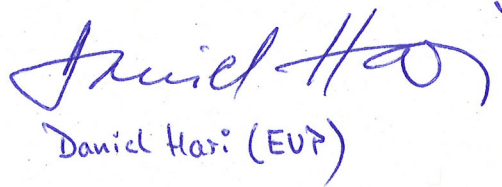 Daniel Hari
Daniel Hari (EVP)